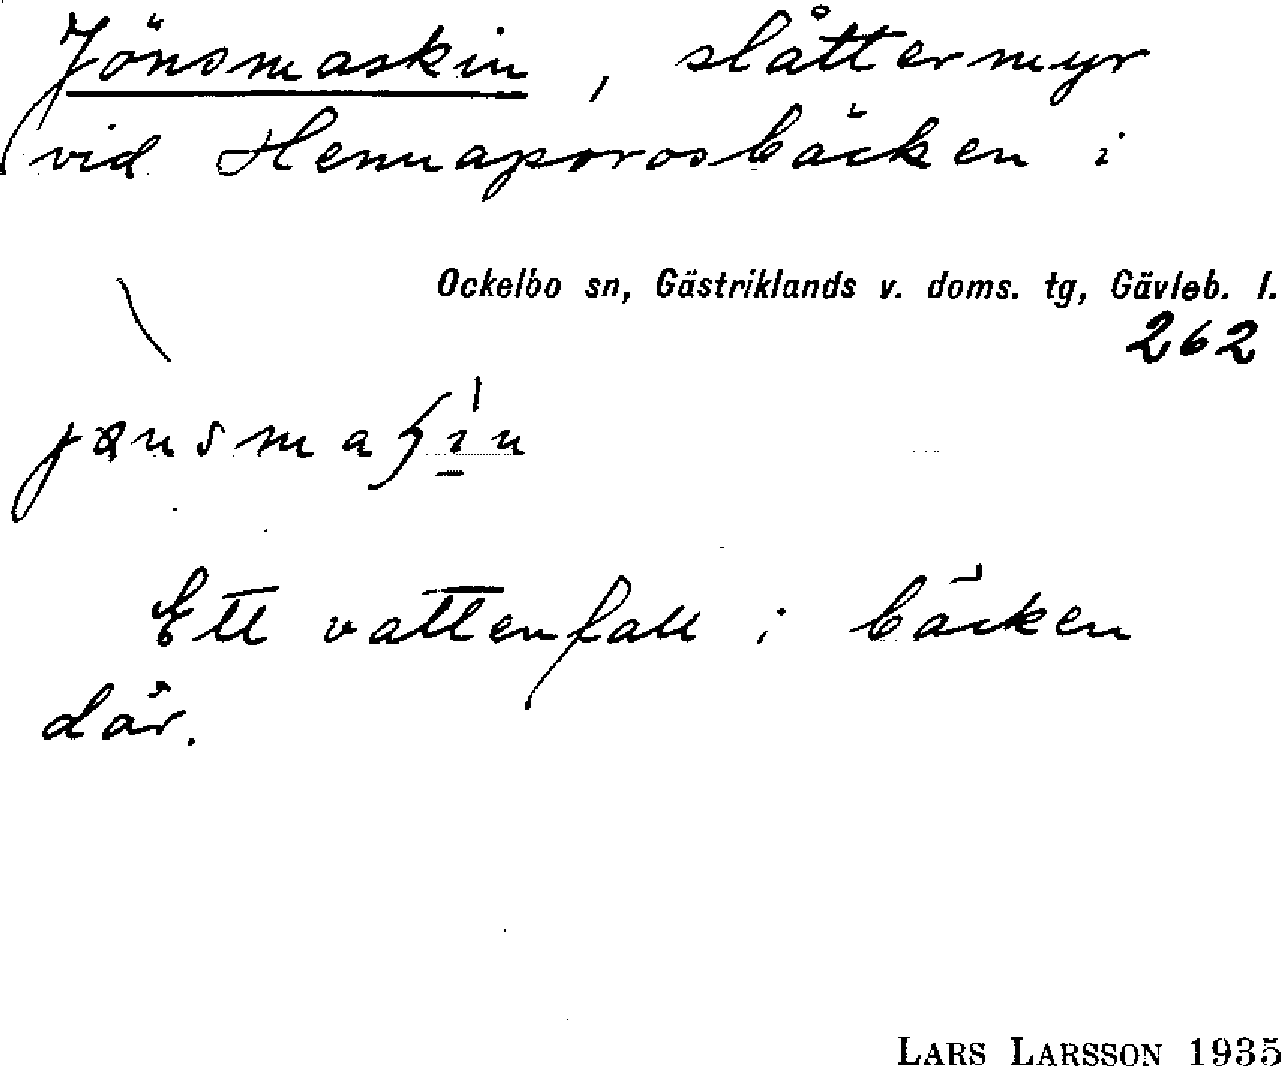 Jönsmaskin, slåttermyr
vid Hennaporosbäcken i
Ockelbo sn, Gästriklands v. doms. tg, Gävleb. l.
262
Ett vattenfall i bäcken
där.
LARS LARSSON 1935